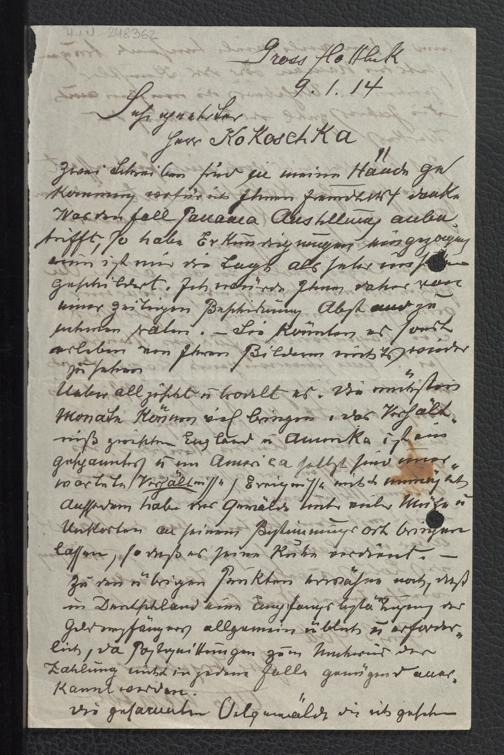 H.I.N.-248362
Gross Hottek
9. 1. 14
Sehr geehrter
Herr Kokoschka
Zwei Schreiben sind in meine Hände ge
kommen wofür ich Ihnen herzlichst danke
Was den Fall Panama Austellung anbe
trifft, so habe Erkundigungen eingezogen
mir ist mir die Lage als sehr
geschildert. Ich würde Ihnen daher von
einer Beschickung Abst and zu
nehmen raten. – Sie könnten es sonst
erleben von Ihren Bildern nichts wieder
zu sehen
Ueberall gährt u brodelt es. Die nächsten
Monate können viel bringen, das Verhält-
niß zwischen England u Amerika ist ein
gespanntes u im America selbst sind uner-
wartete Verhältnisse / Ereignisse nicht unmöglich
Ausserdem habe das Gemälde unter vieler Mühe u
Unkosten an seinen Bestimmungsort bringen
lassen, so daß es seine Ruhe verdient. –
Zu den übrigen Punkten erwähne noch, daß
in Deutschland eine Empfangsbestätigung des
Geldempfängers allgemein üblich u erforder-
lich, da Postquittungen zum Nachweis der
Zahlung nicht in jedem Falle genügend aner-
kannt werden.
Die gesamten Oelgemälde die ich gesehen